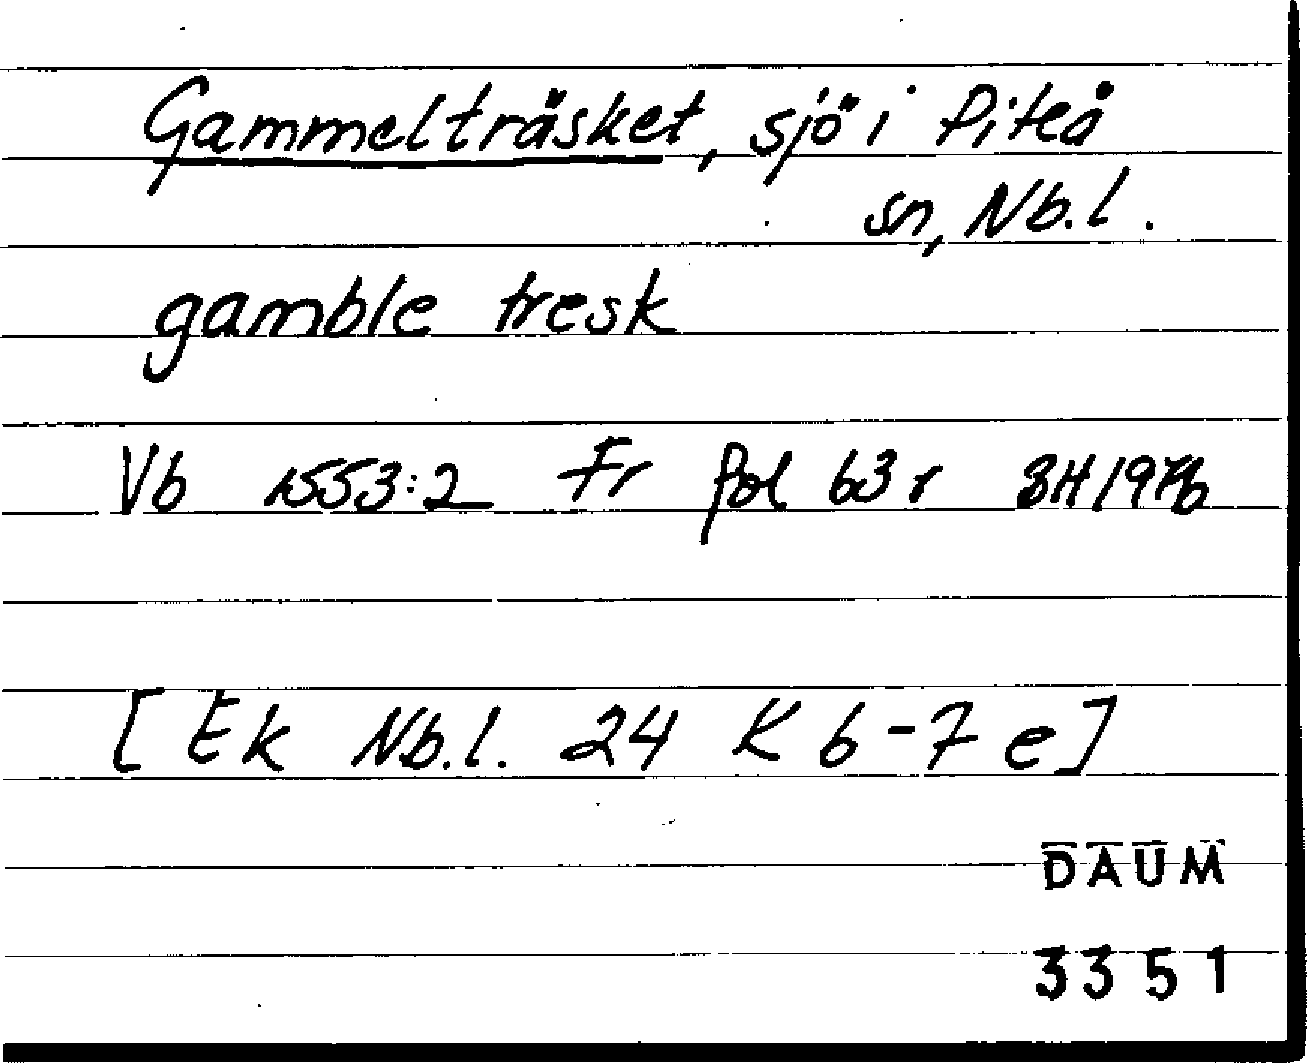 Gammelträsket, sjö i Piteå
sn, Nb.l.
gamble tresk
Vb 1553:2 Fr fol 63 r
[Ek Nb.l. 24 K 6-7 e]
DAUM
3351